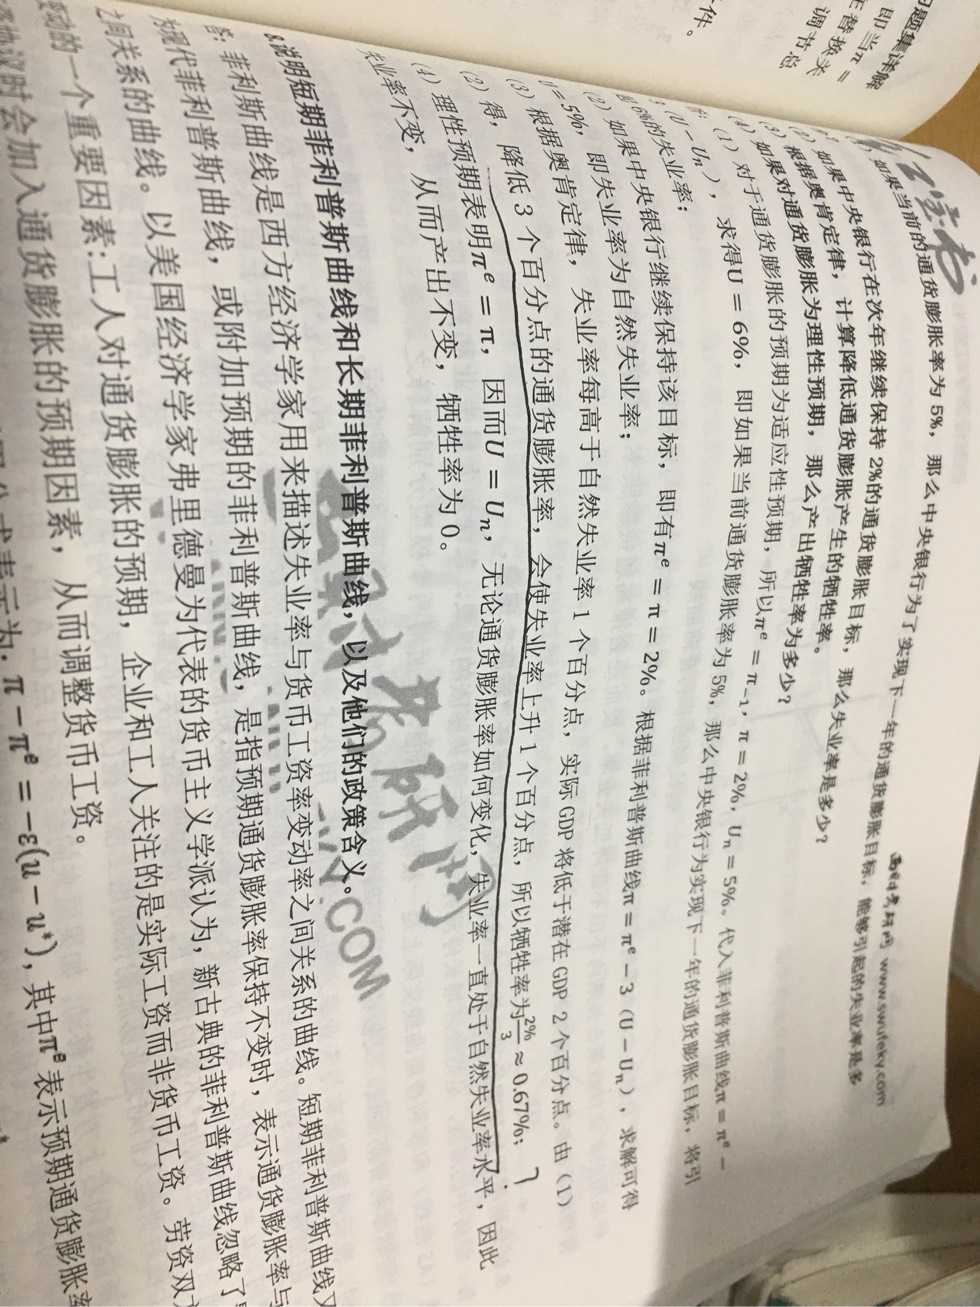 件。
习题集详解
即当π =
主替换米
调节总
如果当前的通货膨胀率为 5%，那么中央银行为了实现下一年的通货膨胀目标，能够引起的失业率是多
www.swufeky.com
如果中央银行在次年继续保持 2%的通货膨胀目标，那么失业率是多少？
根据奥肯定律，计算降低通货膨胀产生的牺牲率。
如果对通货膨胀为理性预期，那么产出牺牲率为多少？
(1) 对于通货膨胀的预期为适应性预期，所以πᵉ = π₋₁，π = 2%，Uₙ = 5%。代入菲利普斯曲线π = πᵉ −
(U − Uₙ)，求得U = 6%，即如果当前通货膨胀率为 5%，那么中央银行为实现下一年的通货膨胀目标，将引
6%的失业率；
(2) 如果中央银行继续保持该目标，即有πᵉ = π = 2%。根据菲利普斯曲线π = πᵉ − 3（U − Uₙ），求解可得
U = 5%，即失业率为自然失业率；
(3) 根据奥肯定律，失业率每高于自然失业率 1 个百分点，实际 GDP 将低于潜在 GDP 2 个百分点。由（1）
(2) 得，降低 3 个百分点的通货膨胀率，会使失业率上升 1 个百分点，所以牺牲率为2%/3 ≈ 0.67%；
(4) 理性预期表明πᵉ = π，因而U = Uₙ，无论通货膨胀率如何变化，失业率一直处于自然失业率水平，因此
失业率不变，从而产出不变，牺牲率为 0。
说明短期菲利普斯曲线和长期菲利普斯曲线，以及他们的政策含义。
答：菲利斯曲线是西方经济学家用来描述失业率与货币工资率变动率之间关系的曲线。短期菲利普斯曲线又
现代菲利普斯曲线，或附加预期的菲利普斯曲线，是指预期通货膨胀率保持不变时，表示通货膨胀率与
之间关系的曲线。以美国经济学家弗里德曼为代表的货币主义学派认为，新古典的菲利普斯曲线忽略了
的一个重要因素：工人对通货膨胀的预期，企业和工人关注的是实际工资而非货币工资。劳资双方
协议时会加入通货膨胀的预期因素，从而调整货币工资。
表示为：π − πᵉ = −ε(u − u*)，其中πᵉ表示预期通货膨胀率
考研网
.COM